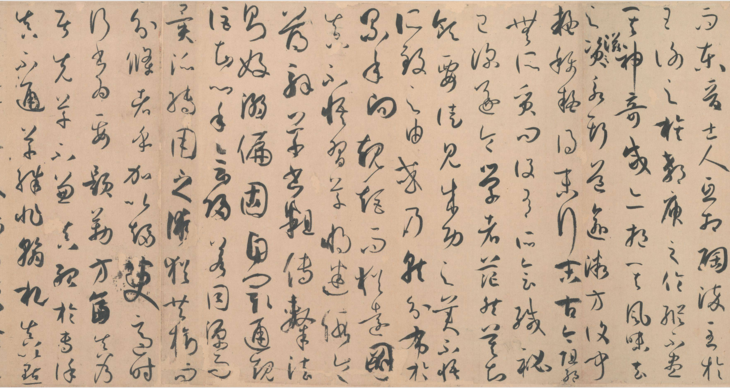 而東晉士人互相陶淬至於
王謝之族郗庾之倫縱不盡
其神奇咸亦挹其風味去
之滋永斯道愈微方復聞
疑稱疑得末行末古今阻絕
無所質問設有所會緘秘
已深遂令學者茫然莫知
領要徒見成功之美不悟
所致之由或乃就分布於
累年向規矩而猶遠圖
真不悟習草將迷假令
薄解草書粗傳隸法
則好溺偏固自閡通規
詎知心手會歸若同源而
異派轉用之術猶共樹而
分條者乎加以趨變適時
行書為要題勒方畐真乃
居先草不兼真殆於專謹
真不通草殊非翰札真以點